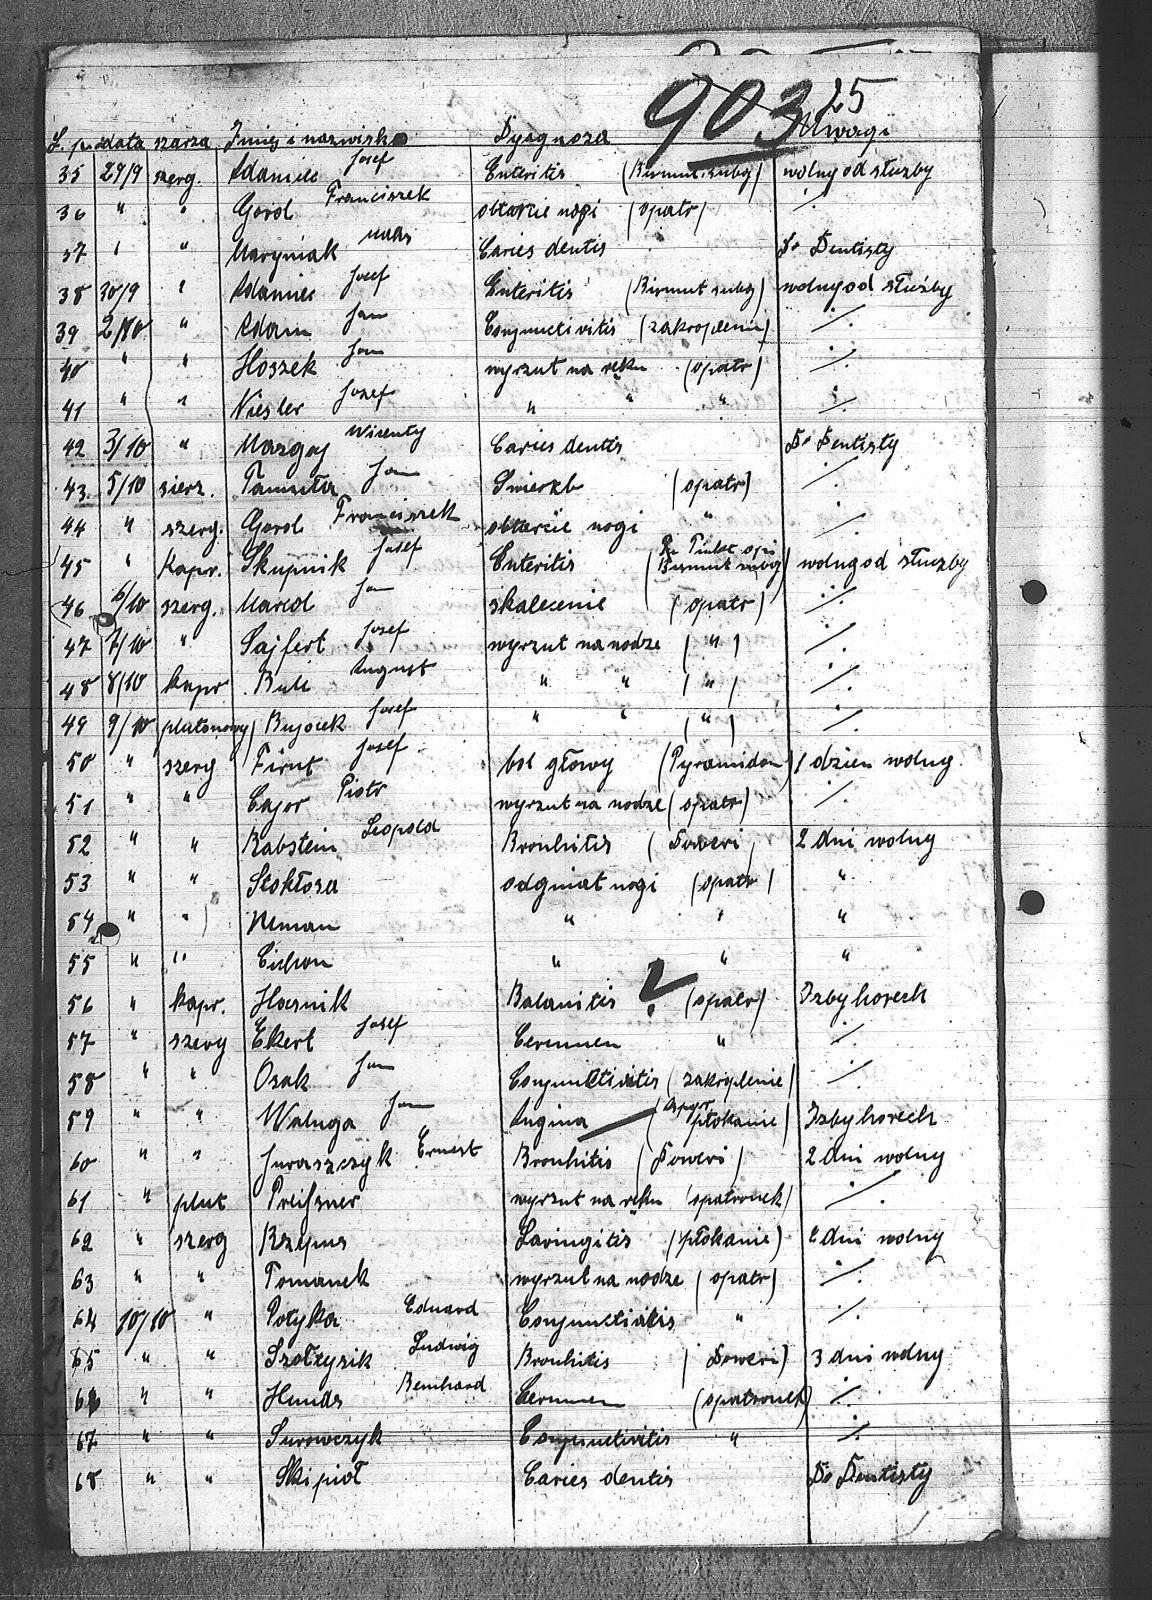 903 25
L. p. data szarża Imię i nazwisko Dyagnoza Uwagi
35 29/9 szerg. Adamiec Josef Enteritis (Bismut. subg) wolny od służby
36 " " Gorol Franciszek obtarcie nogi (opatr) ./.
37 " " Maryniak Caries dentis Do Dentisty
38 30/9 " Adamiec Josef Enteritis (Bismut subg) wolny od służby
39 2/10 " Adam Jan Conjunctivitis (zakroplenie) ./.
40 " " Hoszek Jan wyrzut na ręku (opatr) ./.
41 " " Niesler Jozef " " " ./.
42 3/10 " Mazgaj Wicenty Caries dentis Do Dentisty
43. 5/10 sierz. Jan Swierzb (opatr) ./.
44 " szerg. Gorol Franciszek obtarcie nogi " ./.
45 " Kapr. Skupnik Josef Enteritis (Bismut subg) wolny od służby
46 6/10 szerg. Marcol Jan skalecenie (opatr) ./.
47 7/10 " Sajfert Jozef wyrzut na nodze ( " ) ./.
48 8/10 kapr. Buli August " " ( " ) ./.
49 9/10 plutonowy Bujocek Josef " " ( " ) ./.
50 " szerg Firut Josef bol głowy (Pyramidon) 1 dzien wolny.
51 " " Cajor Piotr wyrzut na nodze (opatr) ./.
52 " " Rabstein Leopold Bronhitis (Doweri) 2 dni wolny
53 " " Stokłosa odgniat nogi (opatr) "
54 " " Neman " " "
55 " " Cichon " " "
56 " kapr. Hasnik Balanitis ? (opatr) Izby horech
57 " szerg Ekert Josef Cerumen " ./.
58 " " Osak Jan Conjunctivitis (zakroplenie) ./.
59 " " Waluga Jan Angina (Aspyr płokanie) Izby horech
60 " " Juraszczyk Ernest Bronhitis (Doweri) 2 dni wolny
61 " plut Preisner wyrzut na ręku (opatronek) ./.
62 " szerg Laringitis (płokanie) 2 dni wolny
63 " " Tomanek wyrzut na nodze (opatr) ./.
64 10/10 " Potyka Eduard Conjunctivitis " ./.
65 " " Szołtysik Ludwig Bronhitis (Doweri) 3 dni wolny
66 " " Bernhard Cerumen (opatronek) ./.
67 " " Surowczyk Conjunctivitis " ./.
68 " " Skipioł Caries dentis Do Dentisty